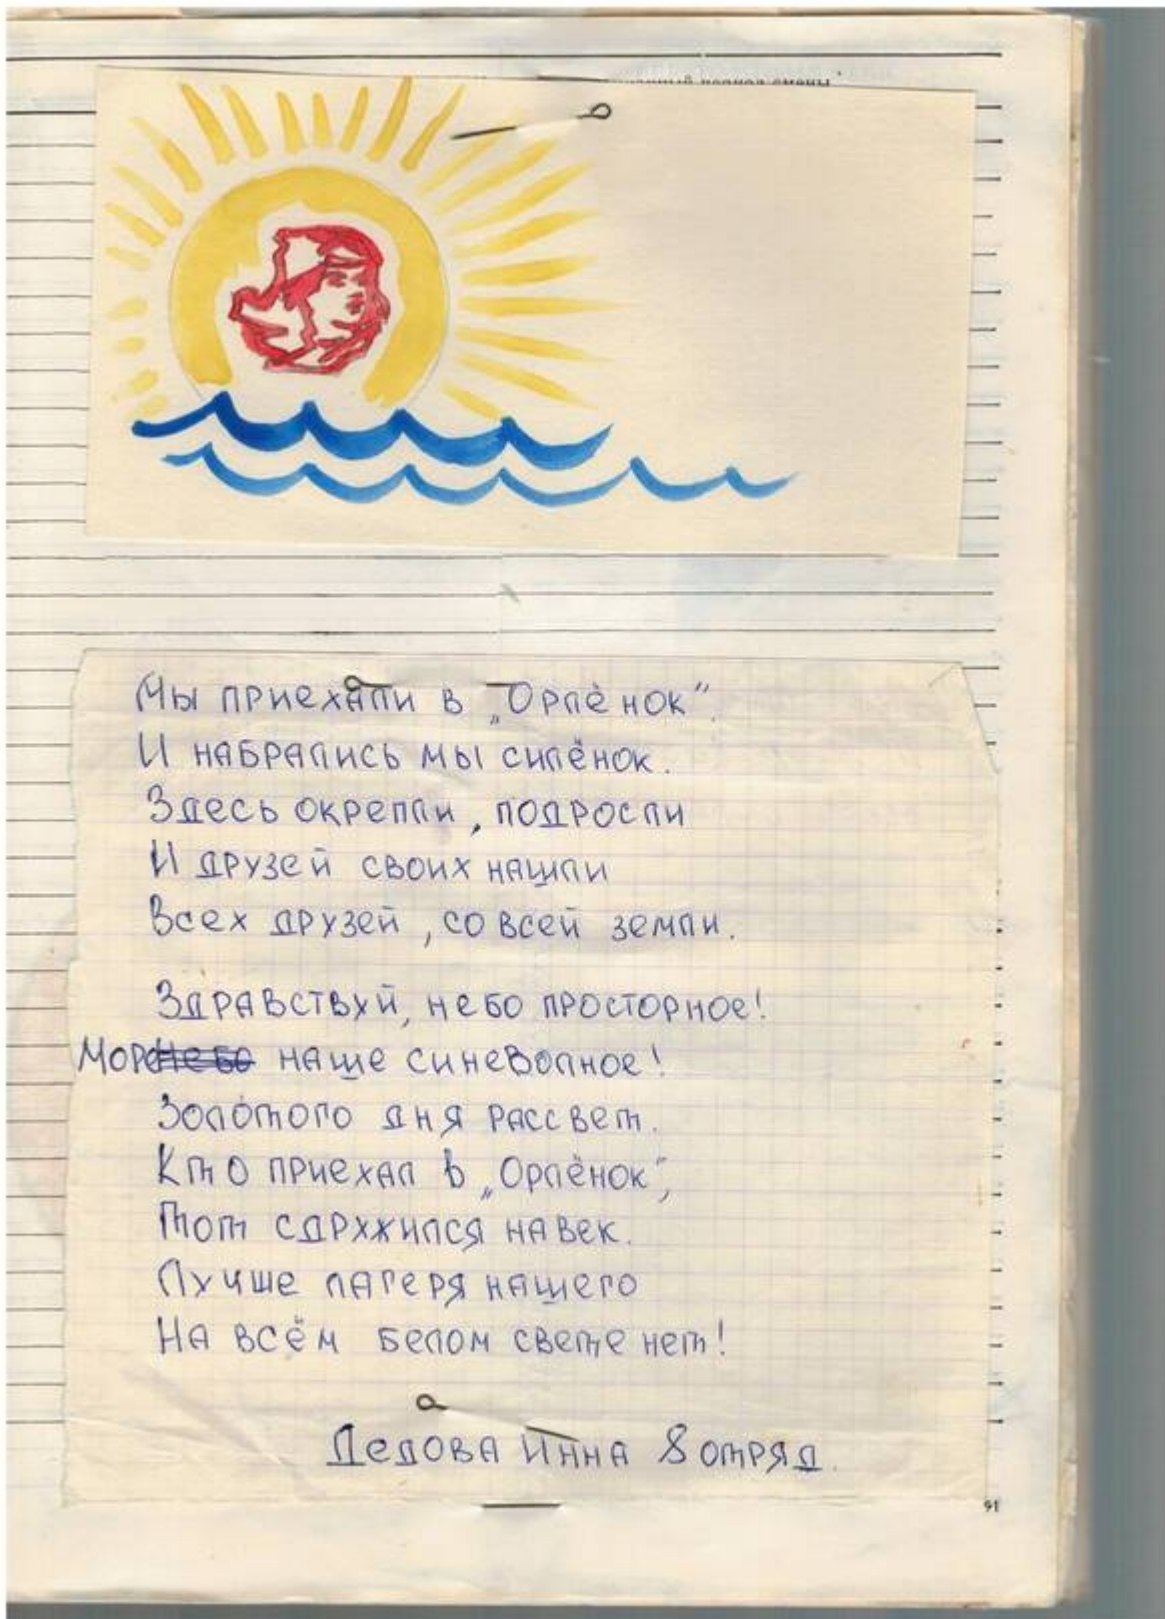 Мы приехали в „Орлёнок".
И набрались мы силёнок.
Здесь окрепли, подросли
И друзей своих нашли
Всех друзей, со всей земли.
Здравствуй, небо просторное!
Море небо наше синеволное!
Золотого дня рассвет.
Кто приехал в „Орлёнок",
Тот сдружился навек.
Лучше лагеря нашего
На всём белом свете нет!
Дедова Инна 8 отряд.
91